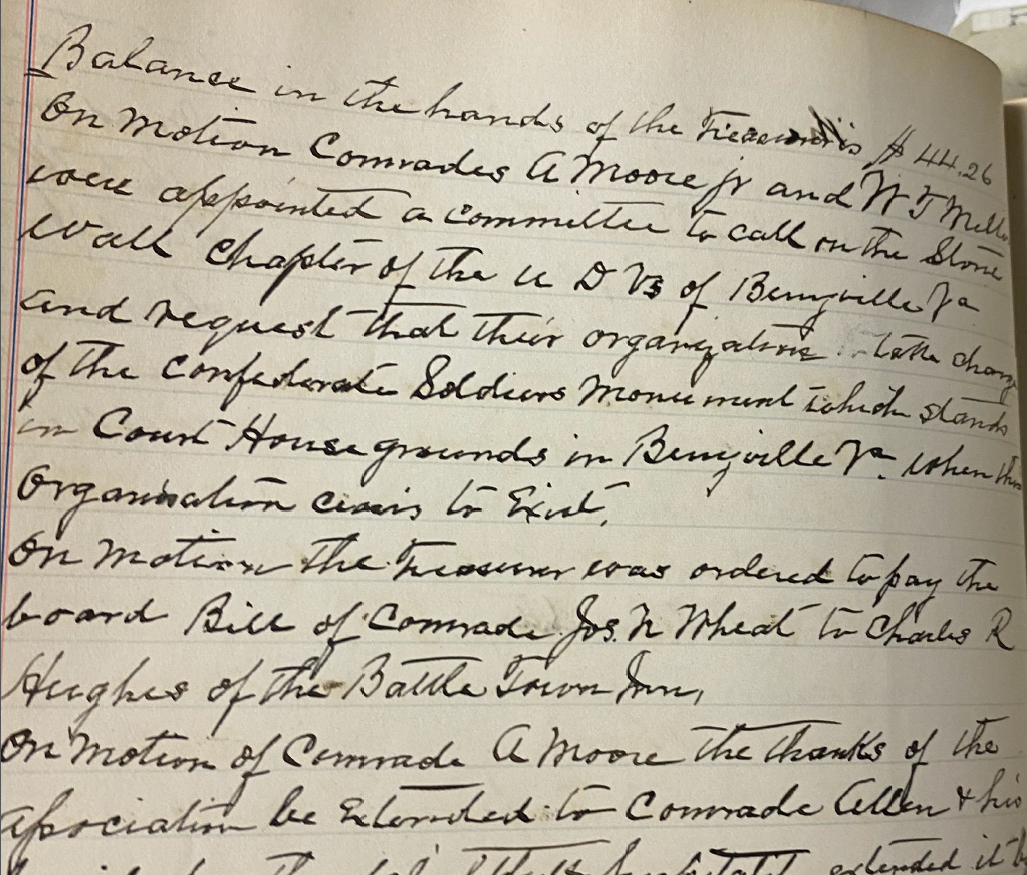 Balance in the hands of the Treasurer is $44.26
On motion Comrades A Moore jr and W T
were appointed a committee to call on the Stone
wall Chapter of the U D Vs of Berryville Va
and request that their organization take charge
of the Confederate Soldiers Monument which stands
in Court House grounds in Berryville Va. when this
Organisation to Exist,
On motion the Treasurer was ordered to pay the
board Bill of Comrade Jos. N Wheat to Charles R
Hughes of the Battle Town Inn,
On motion of Comrade A Moore the thanks of the
Association be Extended to Comrade Allen & his
extended it